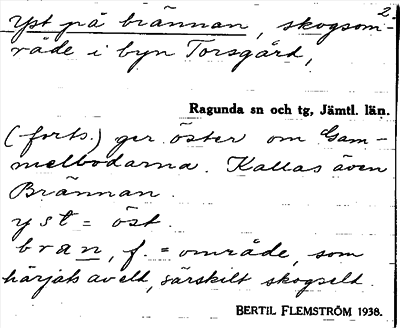 2.
yst på brännan, skogsom-
råde i byn Torsgård,
Ragunda sn och tg, Jämtl. län.
(forts.) ger öster om Gam-
melbodarna. Kallas även
Brännan.
yst = öst.
bran, f. = område, som
härjats av eld, särskilt skogseld.
BERTIL FLEMSTRÖM 1938.